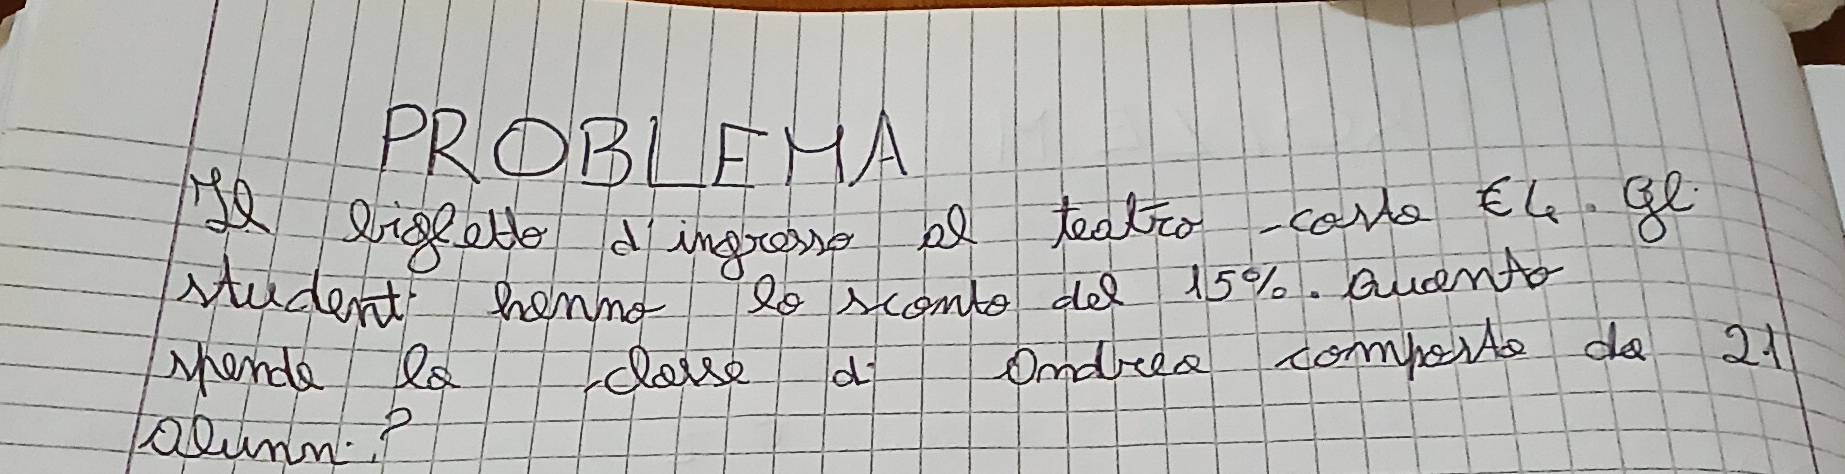 PROBLEMA
Il biglietto d'ingresso al teatro costa € 4. Gli
studenti hanno lo sconto del 15%. Quanto
spende la classe di Andrea composta da 21
alunni?